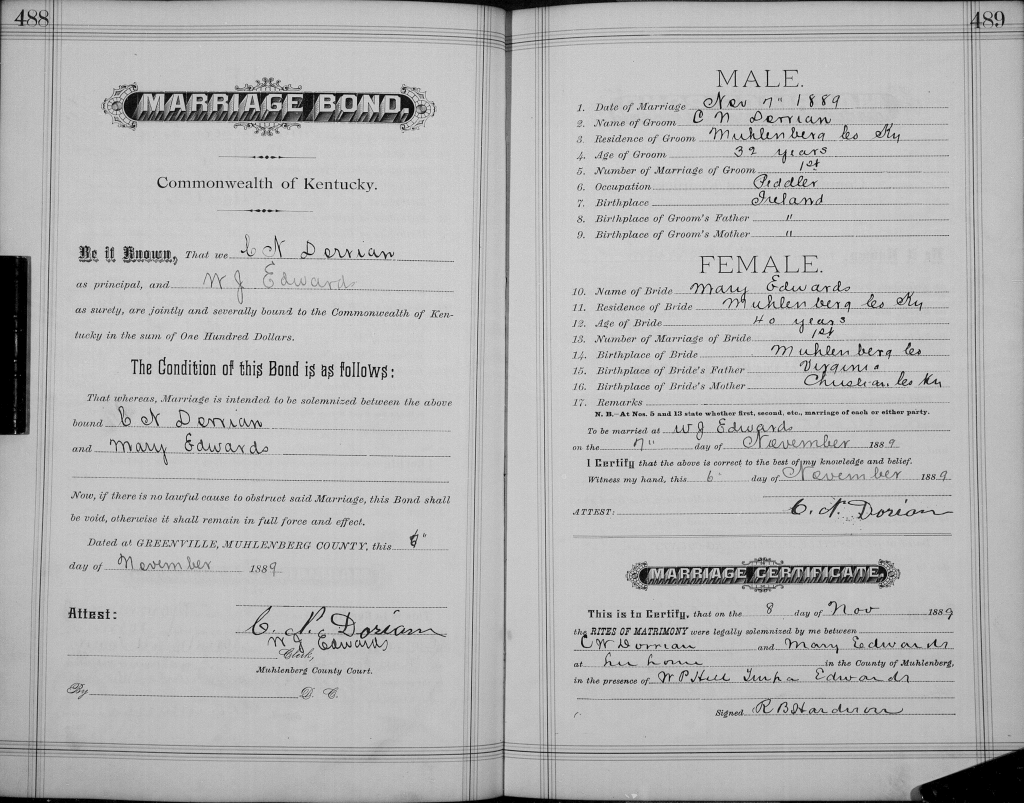 488
MARRIAGE BOND.
Commonwealth of Kentucky.
Be it Known, That we C N Derrian
as principal, and W J Edwards
as surety, are jointly and severally bound to the Commonwealth of Ken-
tucky in the sum of One Hundred Dollars.
The Condition of this Bond is as follows:
That whereas, Marriage is intended to be solemnized between the above
bound C N Derrian
and Mary Edwards
Now, if there is no lawful cause to obstruct said Marriage, this Bond shall
be void, otherwise it shall remain in full force and effect.
Dated at GREENVILLE, MUHLENBERG COUNTY, this 6"
day of November 1889
Attest:
C. N. Dorian
W J Edwards
Clerk,
Muhlenberg County Court.
By D. C.
489
MALE.
1. Date of Marriage Nov 7" 1889
2. Name of Groom C N Derrian
3. Residence of Groom Muhlenberg Co Ky
4. Age of Groom 32 years
5. Number of Marriage of Groom 1st
6. Occupation Peddler
7. Birthplace Ireland
8. Birthplace of Groom's Father "
9. Birthplace of Groom's Mother "
FEMALE.
10. Name of Bride Mary Edwards
11. Residence of Bride Muhlenberg Co Ky
12. Age of Bride 40 years
13. Number of Marriage of Bride 1st
14. Birthplace of Bride Muhlenberg Co
15. Birthplace of Bride's Father Virginia
16. Birthplace of Bride's Mother Christian Co Ky
17. Remarks
N. B.—At Nos. 5 and 13 state whether first, second, etc., marriage of each or either party.
To be married at W J Edwards
on the 7" day of November 1889
I Certify that the above is correct to the best of my knowledge and belief.
Witness my hand, this 6" day of November 1889
ATTEST: C. N. Dorian
MARRIAGE CERTIFICATE.
This is to Certify, that on the 8 day of Nov 1889
the RITES OF MATRIMONY were legally solemnized by me between
C W Dorrian and Mary Edwards
at her home in the County of Muhlenberg,
in the presence of W P Hill Edwards
Signed R B Hardison